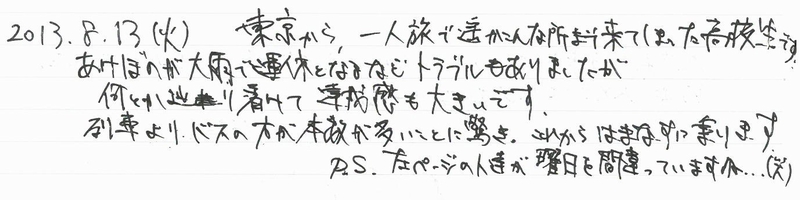 2013.8.13(火) 東京から、一人旅で遥かこんな所まで来てしまった高校生です
あけぼのが大雨で運休となるなどトラブルもありましたが
何とか辿り着けて達成感も大きいです。
列車よりバスの方が本数が多いことに驚き。これからはまなすに乗ります
P.S. 左ページの人達が曜日を間違っていますね…(笑)